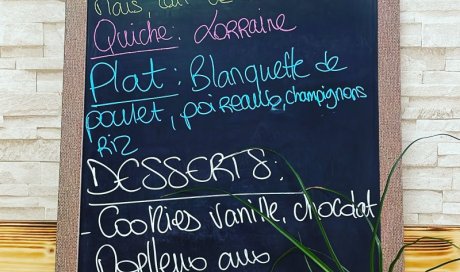 Quiche: Lorraine
Plat: Blanquette de
poulet, poireaux, champignons
Riz
DESSERTS:
- Cookies vanille, chocolat
Moelleux aux